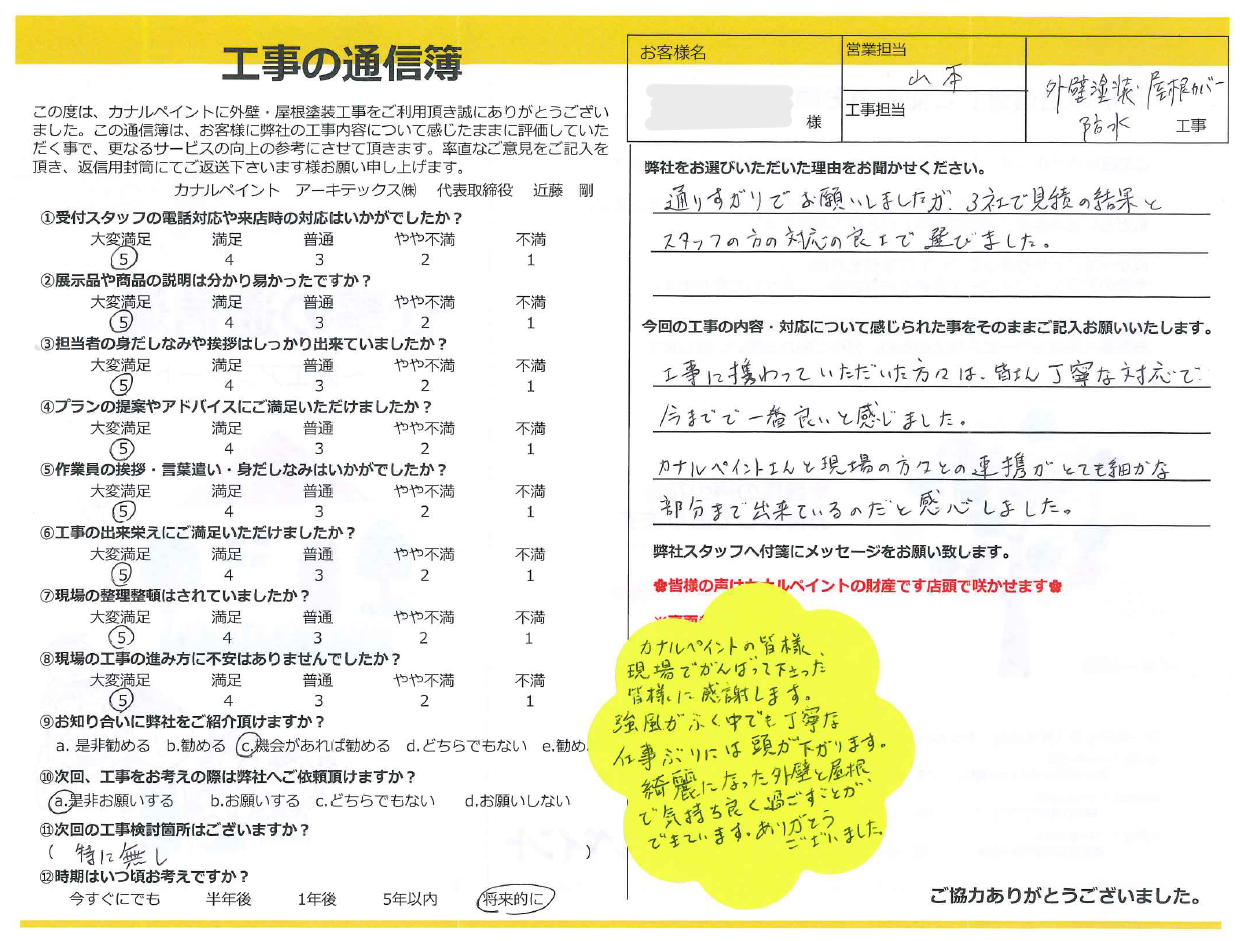 工事の通信簿
この度は、カナルペイントに外壁・屋根塗装工事をご利用頂き誠にありがとうござい
ました。この通信簿は、お客様に弊社の工事内容について感じたままに評価していた
だく事で、更なるサービスの向上の参考にさせて頂きます。率直なご意見をご記入を
頂き、返信用封筒にてご返送下さいます様お願い申し上げます。
カナルペイント アーキテックス㈱ 代表取締役 近藤 剛
①受付スタッフの電話対応や来店時の対応はいかがでしたか？
大変満足 満足 普通 やや不満 不満
5 4 3 2 1
②展示品や商品の説明は分かり易かったですか？
大変満足 満足 普通 やや不満 不満
5 4 3 2 1
③担当者の身だしなみや挨拶はしっかり出来ていましたか？
大変満足 満足 普通 やや不満 不満
5 4 3 2 1
④プランの提案やアドバイスにご満足いただけましたか？
大変満足 満足 普通 やや不満 不満
5 4 3 2 1
⑤作業員の挨拶・言葉遣い・身だしなみはいかがでしたか？
大変満足 満足 普通 やや不満 不満
5 4 3 2 1
⑥工事の出来栄えにご満足いただけましたか？
大変満足 満足 普通 やや不満 不満
5 4 3 2 1
⑦現場の整理整頓はされていましたか？
大変満足 満足 普通 やや不満 不満
5 4 3 2 1
⑧現場の工事の進み方に不安はありませんでしたか？
大変満足 満足 普通 やや不満 不満
5 4 3 2 1
⑨お知り合いに弊社をご紹介頂けますか？
a. 是非勧める b.勧める c.機会があれば勧める d.どちらでもない e.勧め
⑩次回、工事をお考えの際は弊社へご依頼頂けますか？
a.是非お願いする b.お願いする c.どちらでもない d.お願いしない
⑪次回の工事検討箇所はございますか？
( 特に無し )
⑫時期はいつ頃お考えですか？
今すぐにでも 半年後 1年後 5年以内 将来的に
お客様名
様
営業担当
山本
工事担当
外壁塗装・屋根カバー
防水 工事
弊社をお選びいただいた理由をお聞かせください。
通りすがりでお願いしましたが、3社で見積の結果と
スタッフの方の対応の良さで選びました。
今回の工事の内容・対応について感じられた事をそのままご記入お願いいたします。
工事に携わっていただいた方々は、皆さん丁寧な対応で
今までで一番良いと感じました。
カナルペイントさんと現場の方々との連携がとても細かな
部分まで出来ているのだと感心しました。
弊社スタッフへ付箋にメッセージをお願い致します。
✿皆様の声はカナルペイントの財産です店頭で咲かせます✿
カナルペイントの皆様、
現場でがんばって下さった
皆様に感謝します。
強風がふく中でも丁寧な
仕事ぶりには頭が下がります。
綺麗になった外壁と屋根、
で気持ち良く過ごすことが
できています。ありがとう
ございました。
ご協力ありがとうございました。